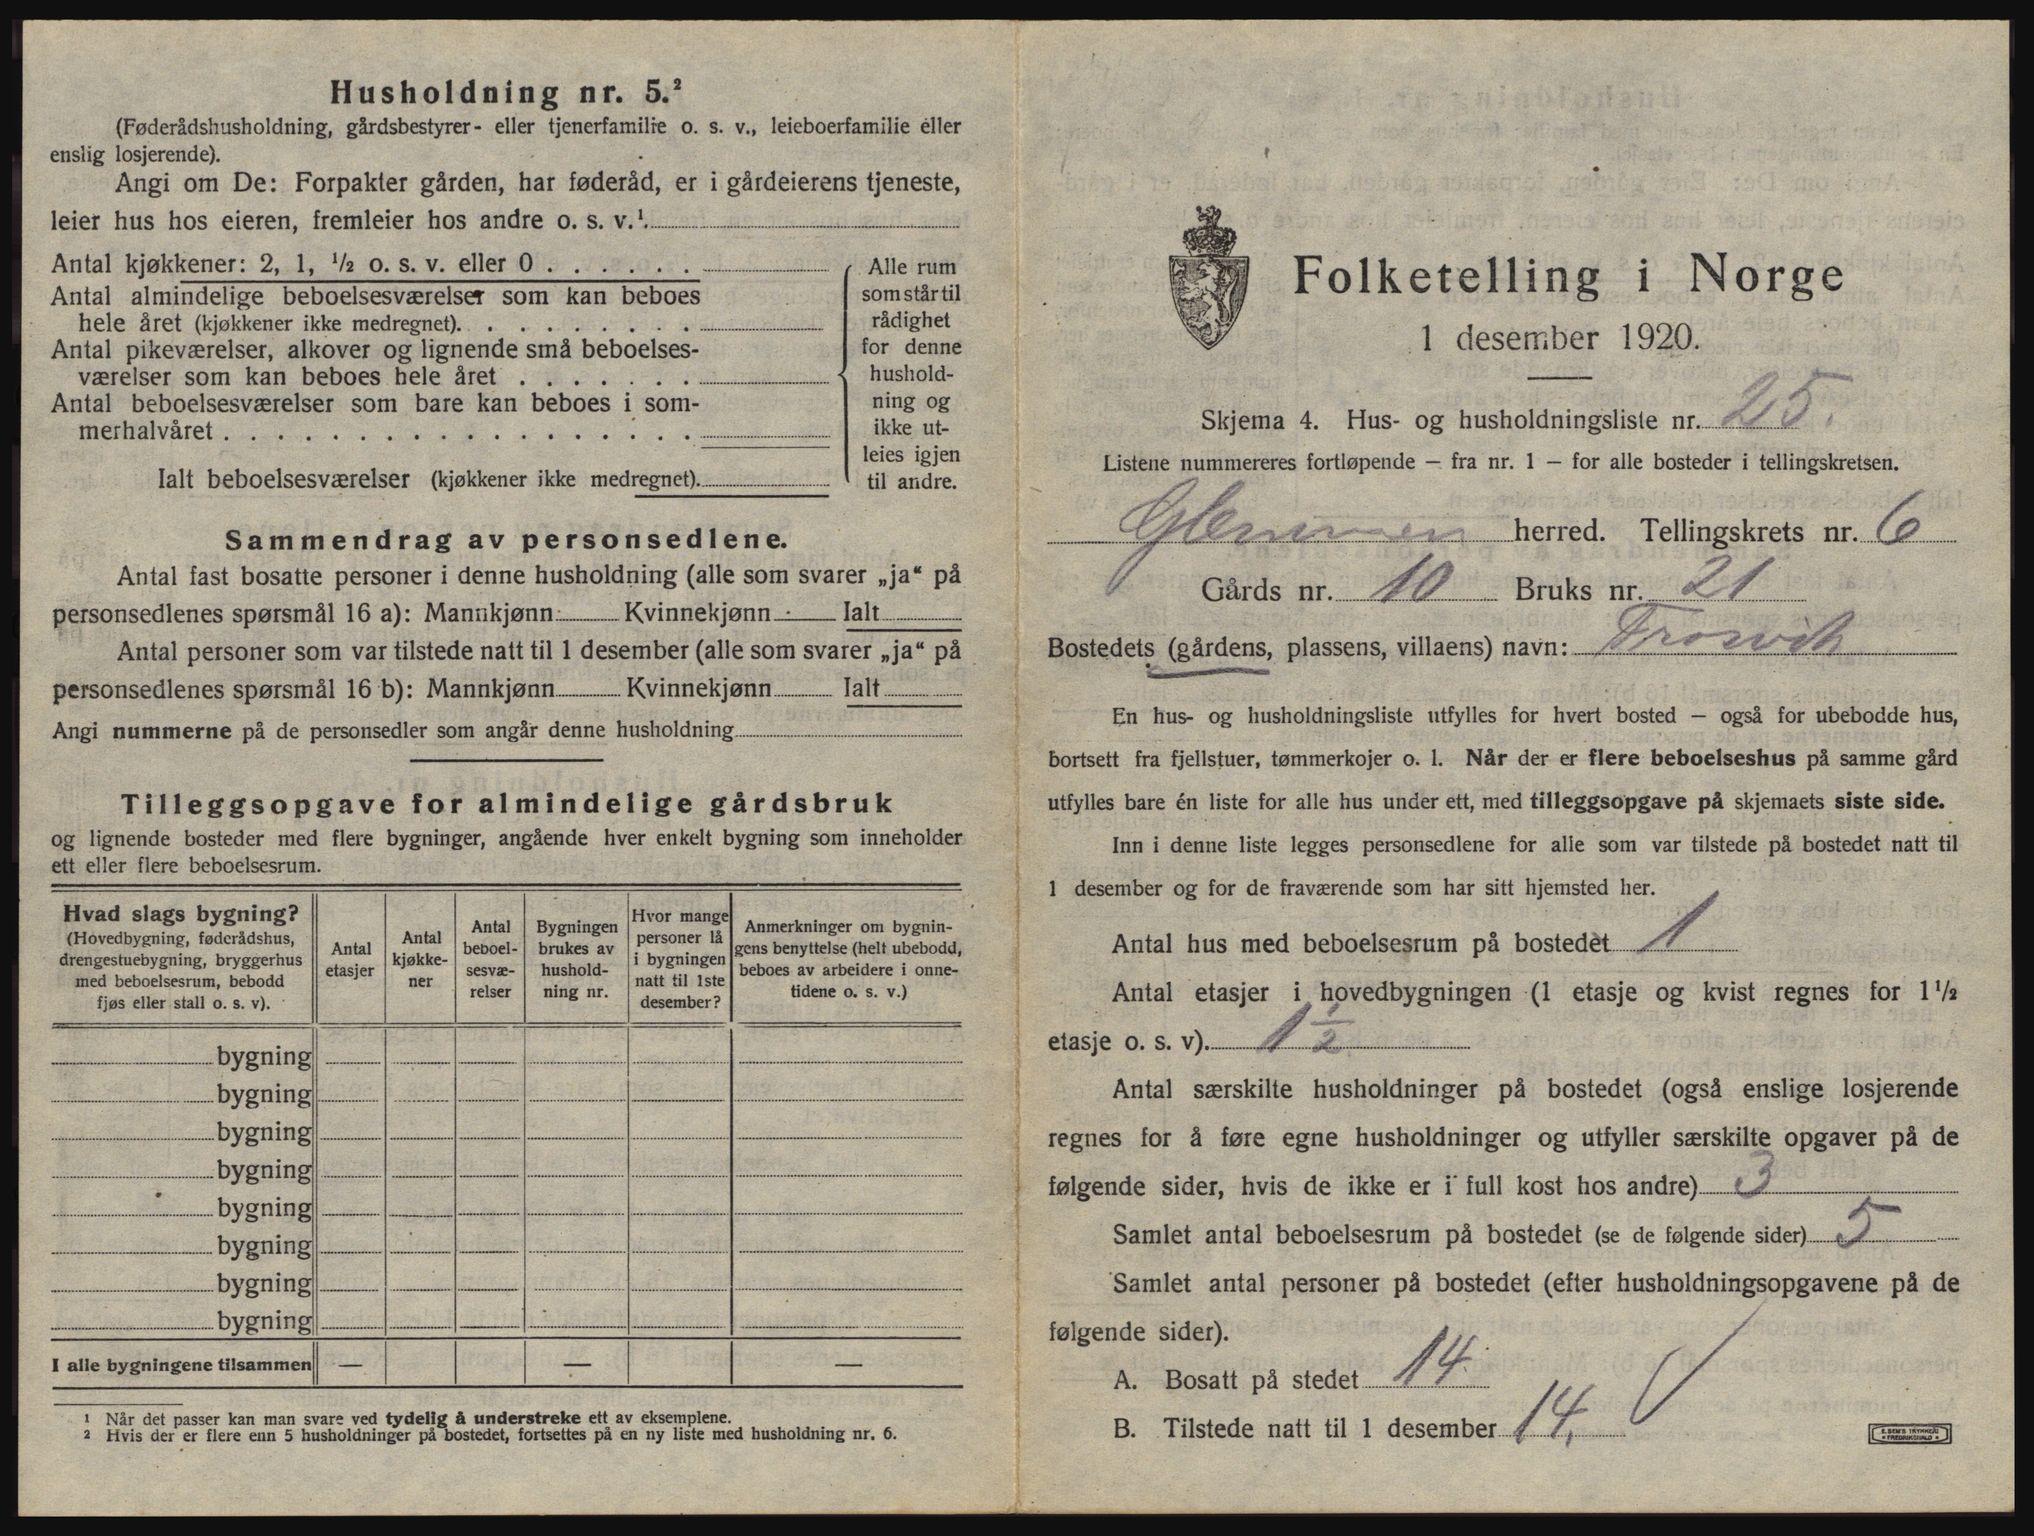 Husholdning nr. 5.²
(Føderådshusholdning, gårdsbestyrer- eller tjenerfamilie o. s. v., leieboerfamilie eller
enslig losjerende).
Angi om De: Forpakter gården, har føderåd, er i gårdeierens tjeneste,
leier hus hos eieren, fremleier hos andre o. s. v.¹.
Antal kjøkkener: 2, 1, ½ o. s. v. eller 0 . . . . . .
Antal almindelige beboelsesværelser som kan beboes
hele året (kjøkkener ikke medregnet). . . . . . . . .
Antal pikeværelser, alkover og lignende små beboelses-
værelser som kan beboes hele året . . . . . . .
Antal beboelsesværelser som bare kan beboes i som-
merhalvåret . . . . . . . . . . . . . . . . . .
Ialt beboelsesværelser (kjøkkener ikke medregnet).
Alle rum
som står til
rådighet
for denne
hushold-
ning og
ikke ut-
leies igjen
til andre.
Sammendrag av personsedlene.
Antal fast bosatte personer i denne husholdning (alle som svarer „ja“ på
personsedlenes spørsmål 16 a): Mannkjønn Kvinnekjønn Ialt
Antal personer som var tilstede natt til 1 desember (alle som svarer „ja“ på
personsedlenes spørsmål 16 b): Mannkjønn Kvinnekjønn Ialt
Angi nummerne på de personsedler som angår denne husholdning
Tilleggsopgave for almindelige gårdsbruk
og lignende bosteder med flere bygninger, angående hver enkelt bygning som inneholder
ett eller flere beboelsesrum.
Hvad slags bygning?
(Hovedbygning, føderådshus,
drengestuebygning, bryggerhus
med beboelsesrum, bebodd
fjøs eller stall o. s. v).
Antal
etasjer
Antal
kjøkke-
ner
Antal
beboel-
sesvæ-
relser
Bygningen
brukes av
hushold-
ning nr.
Hvor mange
personer lå
i bygningen
natt til 1ste
desember?
Anmerkninger om bygnin-
gens benyttelse (helt ubebodd,
beboes av arbeidere i onne-
tidene o. s. v.)
bygning
bygning
bygning
bygning
bygning
bygning
bygning
bygning
I alle bygningene tilsammen — — —
¹ Når det passer kan man svare ved tydelig å understreke ett av eksemplene.
² Hvis der er flere enn 5 husholdninger på bostedet, fortsettes på en ny liste med husholdning nr. 6.
Folketelling i Norge
1 desember 1920.
Skjema 4. Hus- og husholdningsliste nr. 25.
Listene nummereres fortløpende — fra nr. 1 — for alle bosteder i tellingskretsen.
Glemmen herred. Tellingskrets nr. 6
Gårds nr. 10 Bruks nr. 21
Bostedets (gårdens, plassens, villaens) navn: Trosvik
En hus- og husholdningsliste utfylles for hvert bosted — også for ubebodde hus,
bortsett fra fjellstuer, tømmerkojer o. l. Når der er flere beboelseshus på samme gård
utfylles bare én liste for alle hus under ett, med tilleggsopgave på skjemaets siste side.
Inn i denne liste legges personsedlene for alle som var tilstede på bostedet natt til
1 desember og for de fraværende som har sitt hjemsted her.
Antal hus med beboelsesrum på bostedet 1
Antal etasjer i hovedbygningen (1 etasje og kvist regnes for 1½
etasje o. s. v). 1½
Antal særskilte husholdninger på bostedet (også enslige losjerende
regnes for å føre egne husholdninger og utfyller særskilte opgaver på de
følgende sider, hvis de ikke er i full kost hos andre) 3
Samlet antal beboelsesrum på bostedet (se de følgende sider) 5
Samlet antal personer på bostedet (efter husholdningsopgavene på de
følgende sider).
A. Bosatt på stedet 14.
B. Tilstede natt til 1 desember 14.
E. SEM'S TRYKKERI
FREDRIKSHALD